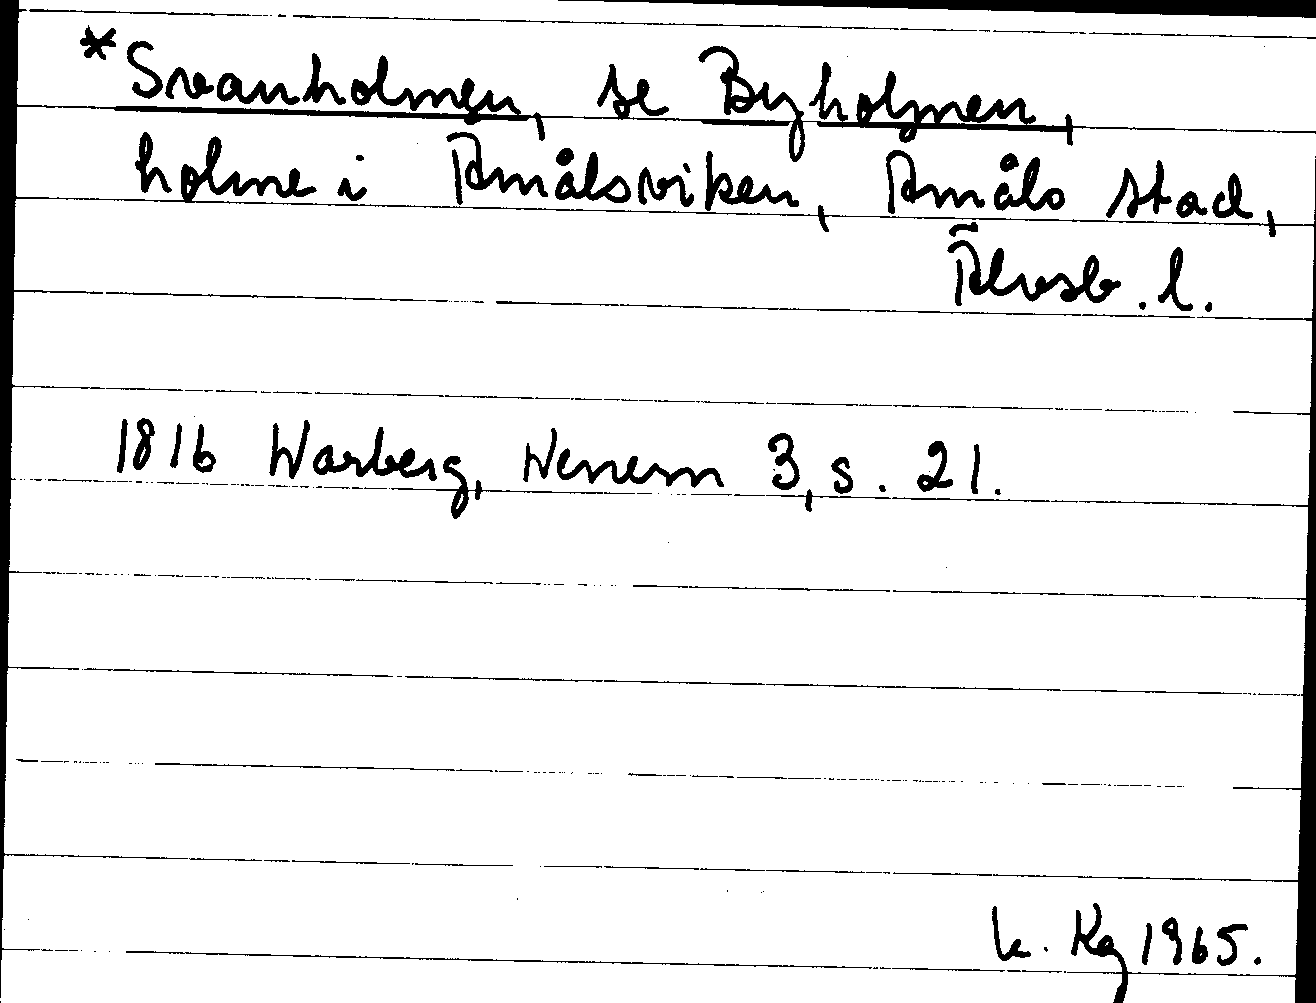 *Svanholmen, se Byholmen,
holme i Åmålsviken, Åmåls stad,
Älvsb. l.
1816 Warberg, Wenern 3, s. 21.
k. Kg 1965.